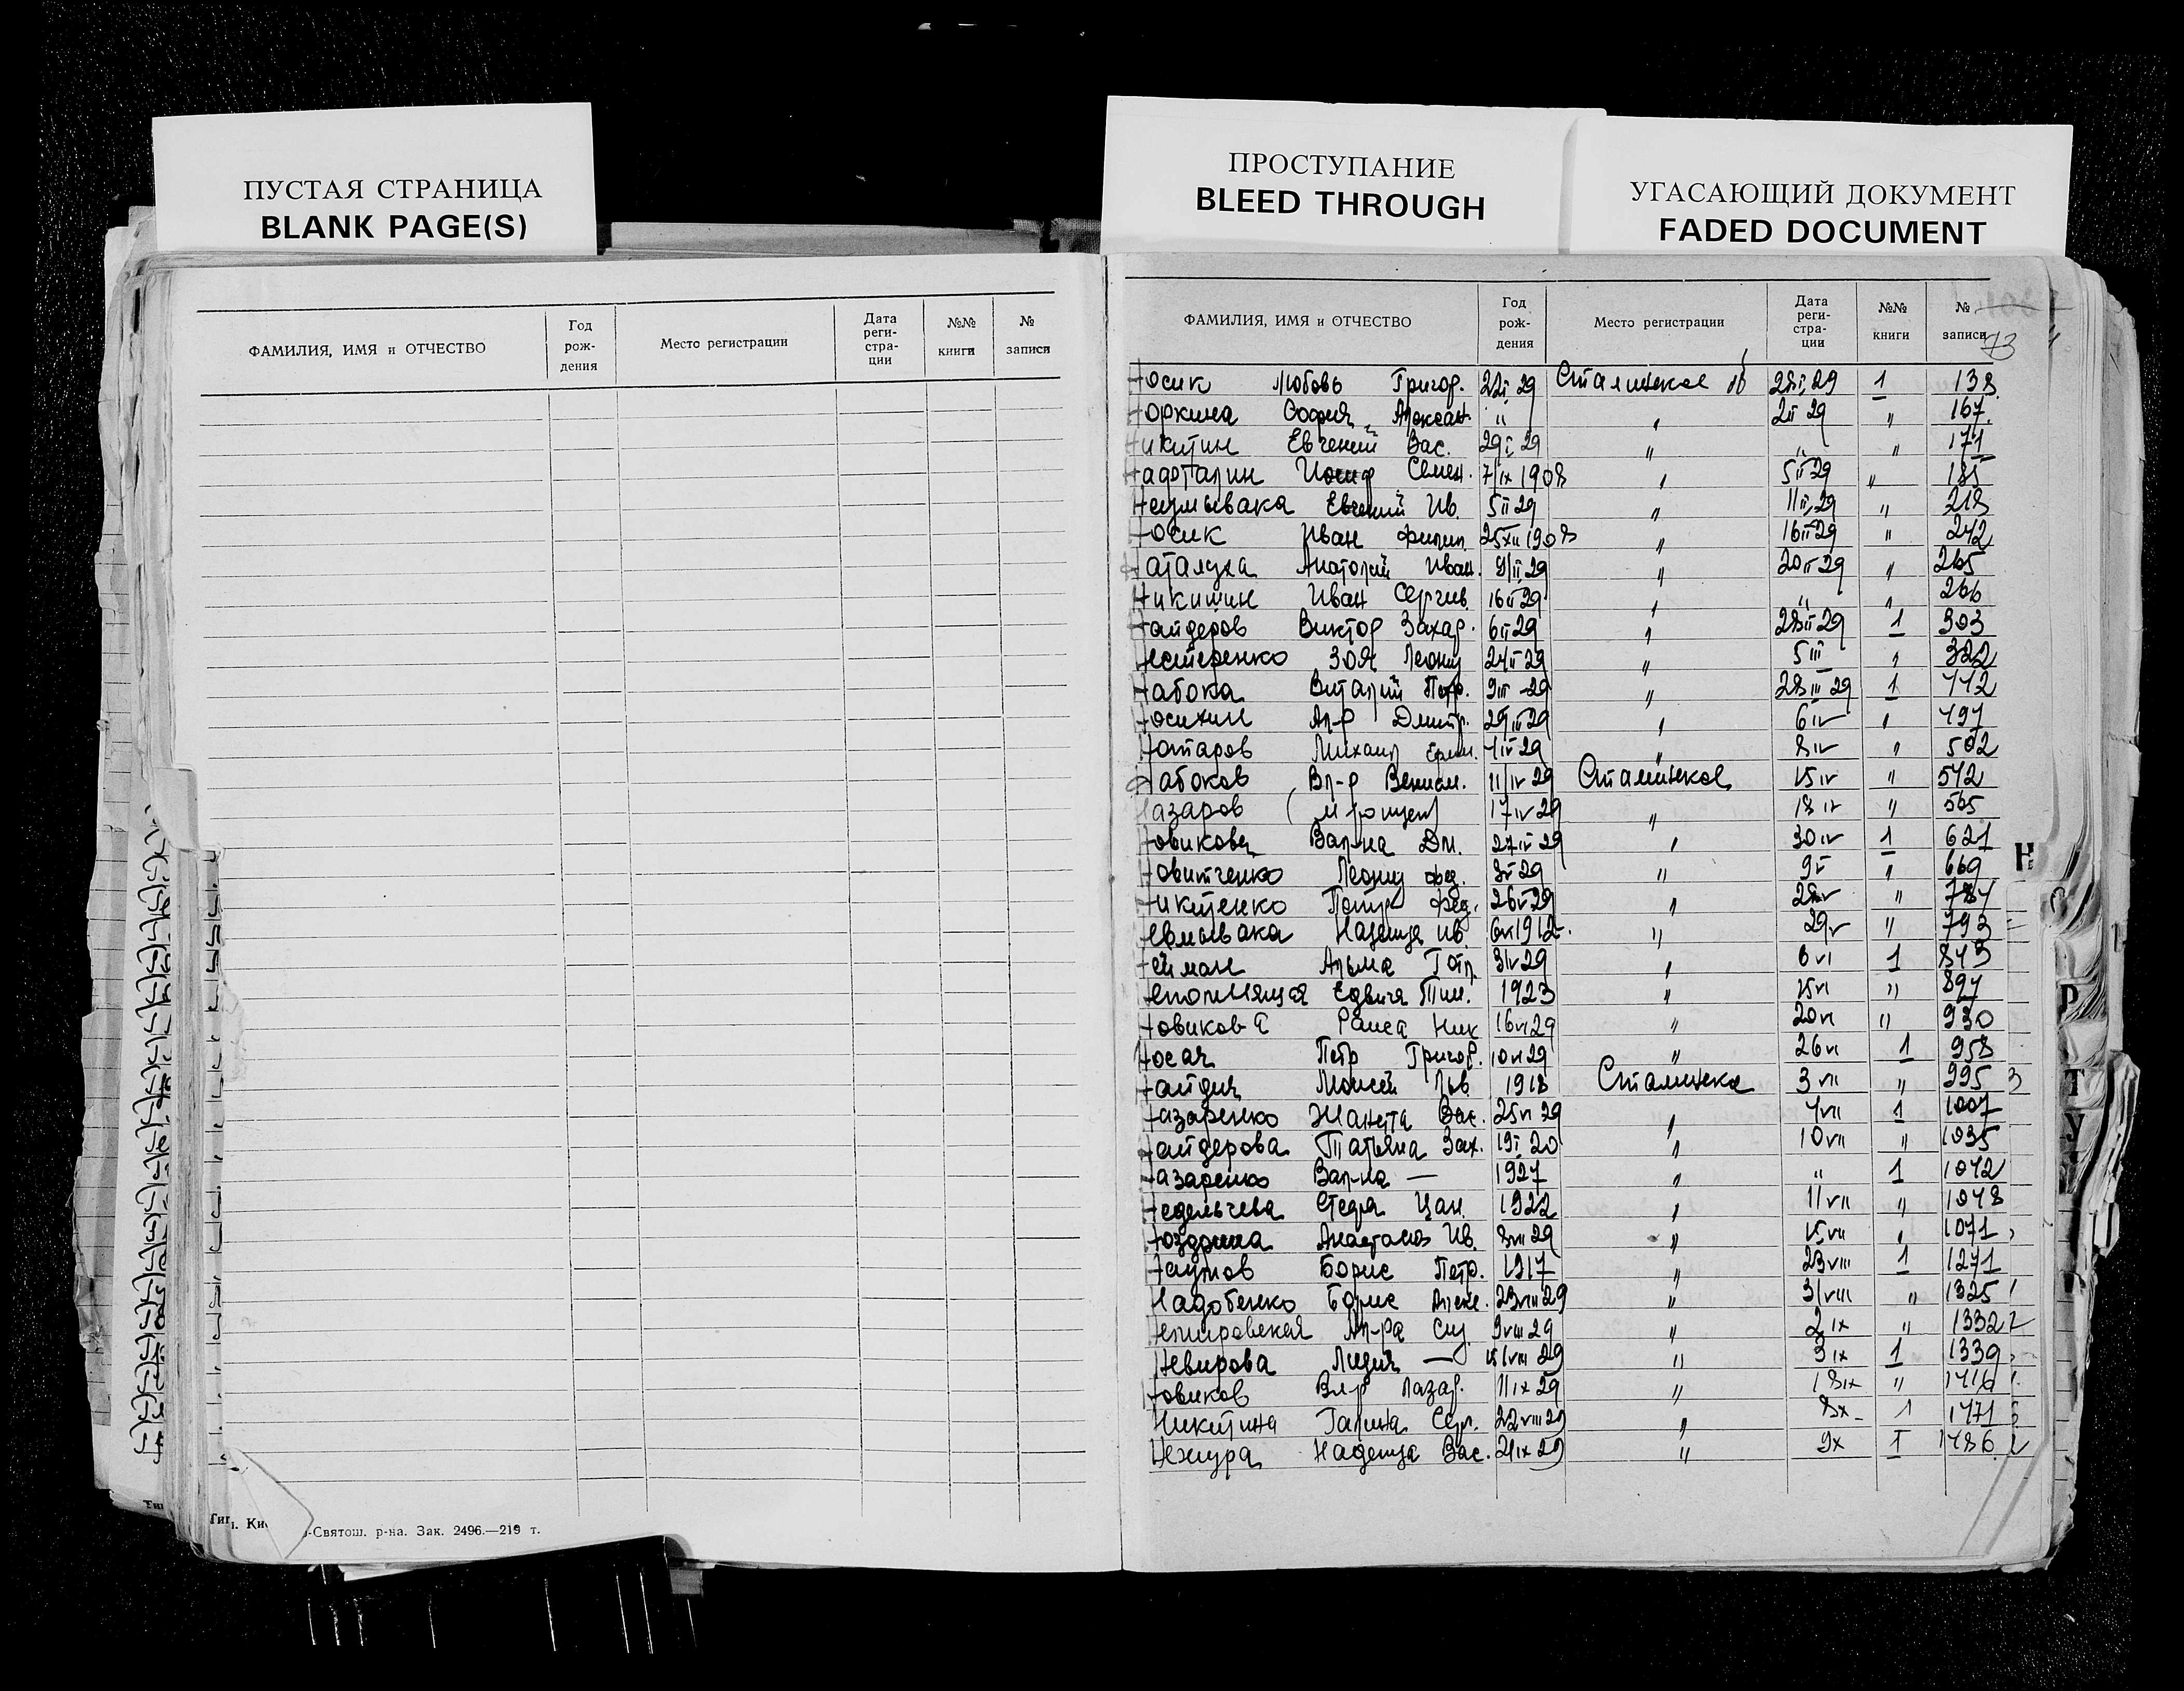 ПУСТАЯ СТРАНИЦА
BLANK PAGE(S)
ПРОСТУПАНИЕ
BLEED THROUGH
УГАСАЮЩИЙ ДОКУМЕНТ
FADED DOCUMENT
ФАМИЛИЯ, ИМЯ и ОТЧЕСТВО Год рож-дения Место регистрации Дата реги-стра-ции №№ книги № записи
-Святош. р-на. Зак. 2496.—219 т.
ФАМИЛИЯ, ИМЯ и ОТЧЕСТВО Год рож-дения Место регистрации Дата реги-стра-ции №№ книги № записи
73
Носик Любовь Григор. 22 I 29 Сталинское 28 I 29 1 138
Норкина София Алексан. " " 2 II 29 " 167
Никитин Евгений Вас. 29 I 29 " " " 171
Надоталин Семен. 7/IX 1908 " 5 II 29 " 185
Неумывака Евгений Ив. 5 II 29 " 11 II 29 " 218
Носик Иван Филип. 25 XII 1908 " 16 II 29 " 242
Наталуха Анатолий Иван. 9/II 29 " 20 II 29 " 265
Никишин Иван Сергив. 16 II 29 " " " 266
Найдеров Виктор Захар. 6 II 29 " 28 II 29 1 303
Нестеренко Зоя Леонид 24 II 29 " 5 III " 322
Набока Виталий Петр. 9 III -29 " 28 III 29 1 442
Носихин Ал-р Дмитр. 29 III 29 " 6 IV " 497
Нотаров Михаил 4 IV 29 " 8 IV " 502
Набоков Вл-р Вениам. 11/IV 29 Сталинское 15 IV " 542
Назаров 17 IV 29 " 18 IV " 565
Новикова Вал-на Дм. 27 IV 29 " 30 IV 1 621
Новитченко Леонид Фед. 3 V 29 " 9 V " 669
Никитенко Фед. 26 V 29 " 28 V " 784
Невмывака Надежда Ив. 6 VI 1912 " 29 V " 793
Нейман Альма 31 V 29 " 6 VI 1 843
Непомнящая Едвига Тим. 1923 " 15 VI " 897
Новикова Раиса Ник 16 VI 29 " 20 VI " 930
Носач Петр Григор. 10 VI 29 " 26 VI 1 958
Найдич Моисей Льв. 1918 Сталинска 3 VII " 995
Назаренко Жанета Вас. 25 VI 29 " 4 VII 1 1007
Найдерова Татьяна Зах. 19 I 20 " 10 VII " 1035
Назаренко Вал-на — 1927 " " 1 1042
Недельчева Стефа Цан. 1922 " 11 VII " 1048
Ноздрина Анастасия Ив. 8 VII 29 " 15 VII " 1071
Наумов Борис Петр. 1917 " 23 VIII 1 1271
Надобенко Борис Алекс. 23 VIII 29 " 31 VIII " 1325
Немировская Ал-ра 9 VIII 29 " 2 IX " 1332
Невирова Лидия — 15 VIII 29 " 3 IX 1 1339
Новиков Вл-р Лазар. 11 IX 29 " 18 IX " 1416
Никитина Галина Сер. 22 VIII 29 " 8 X 1 1471
Нежура Надежда Вас. 21 IX 29 " 9 X 1 1486
Н
Р
Т
У